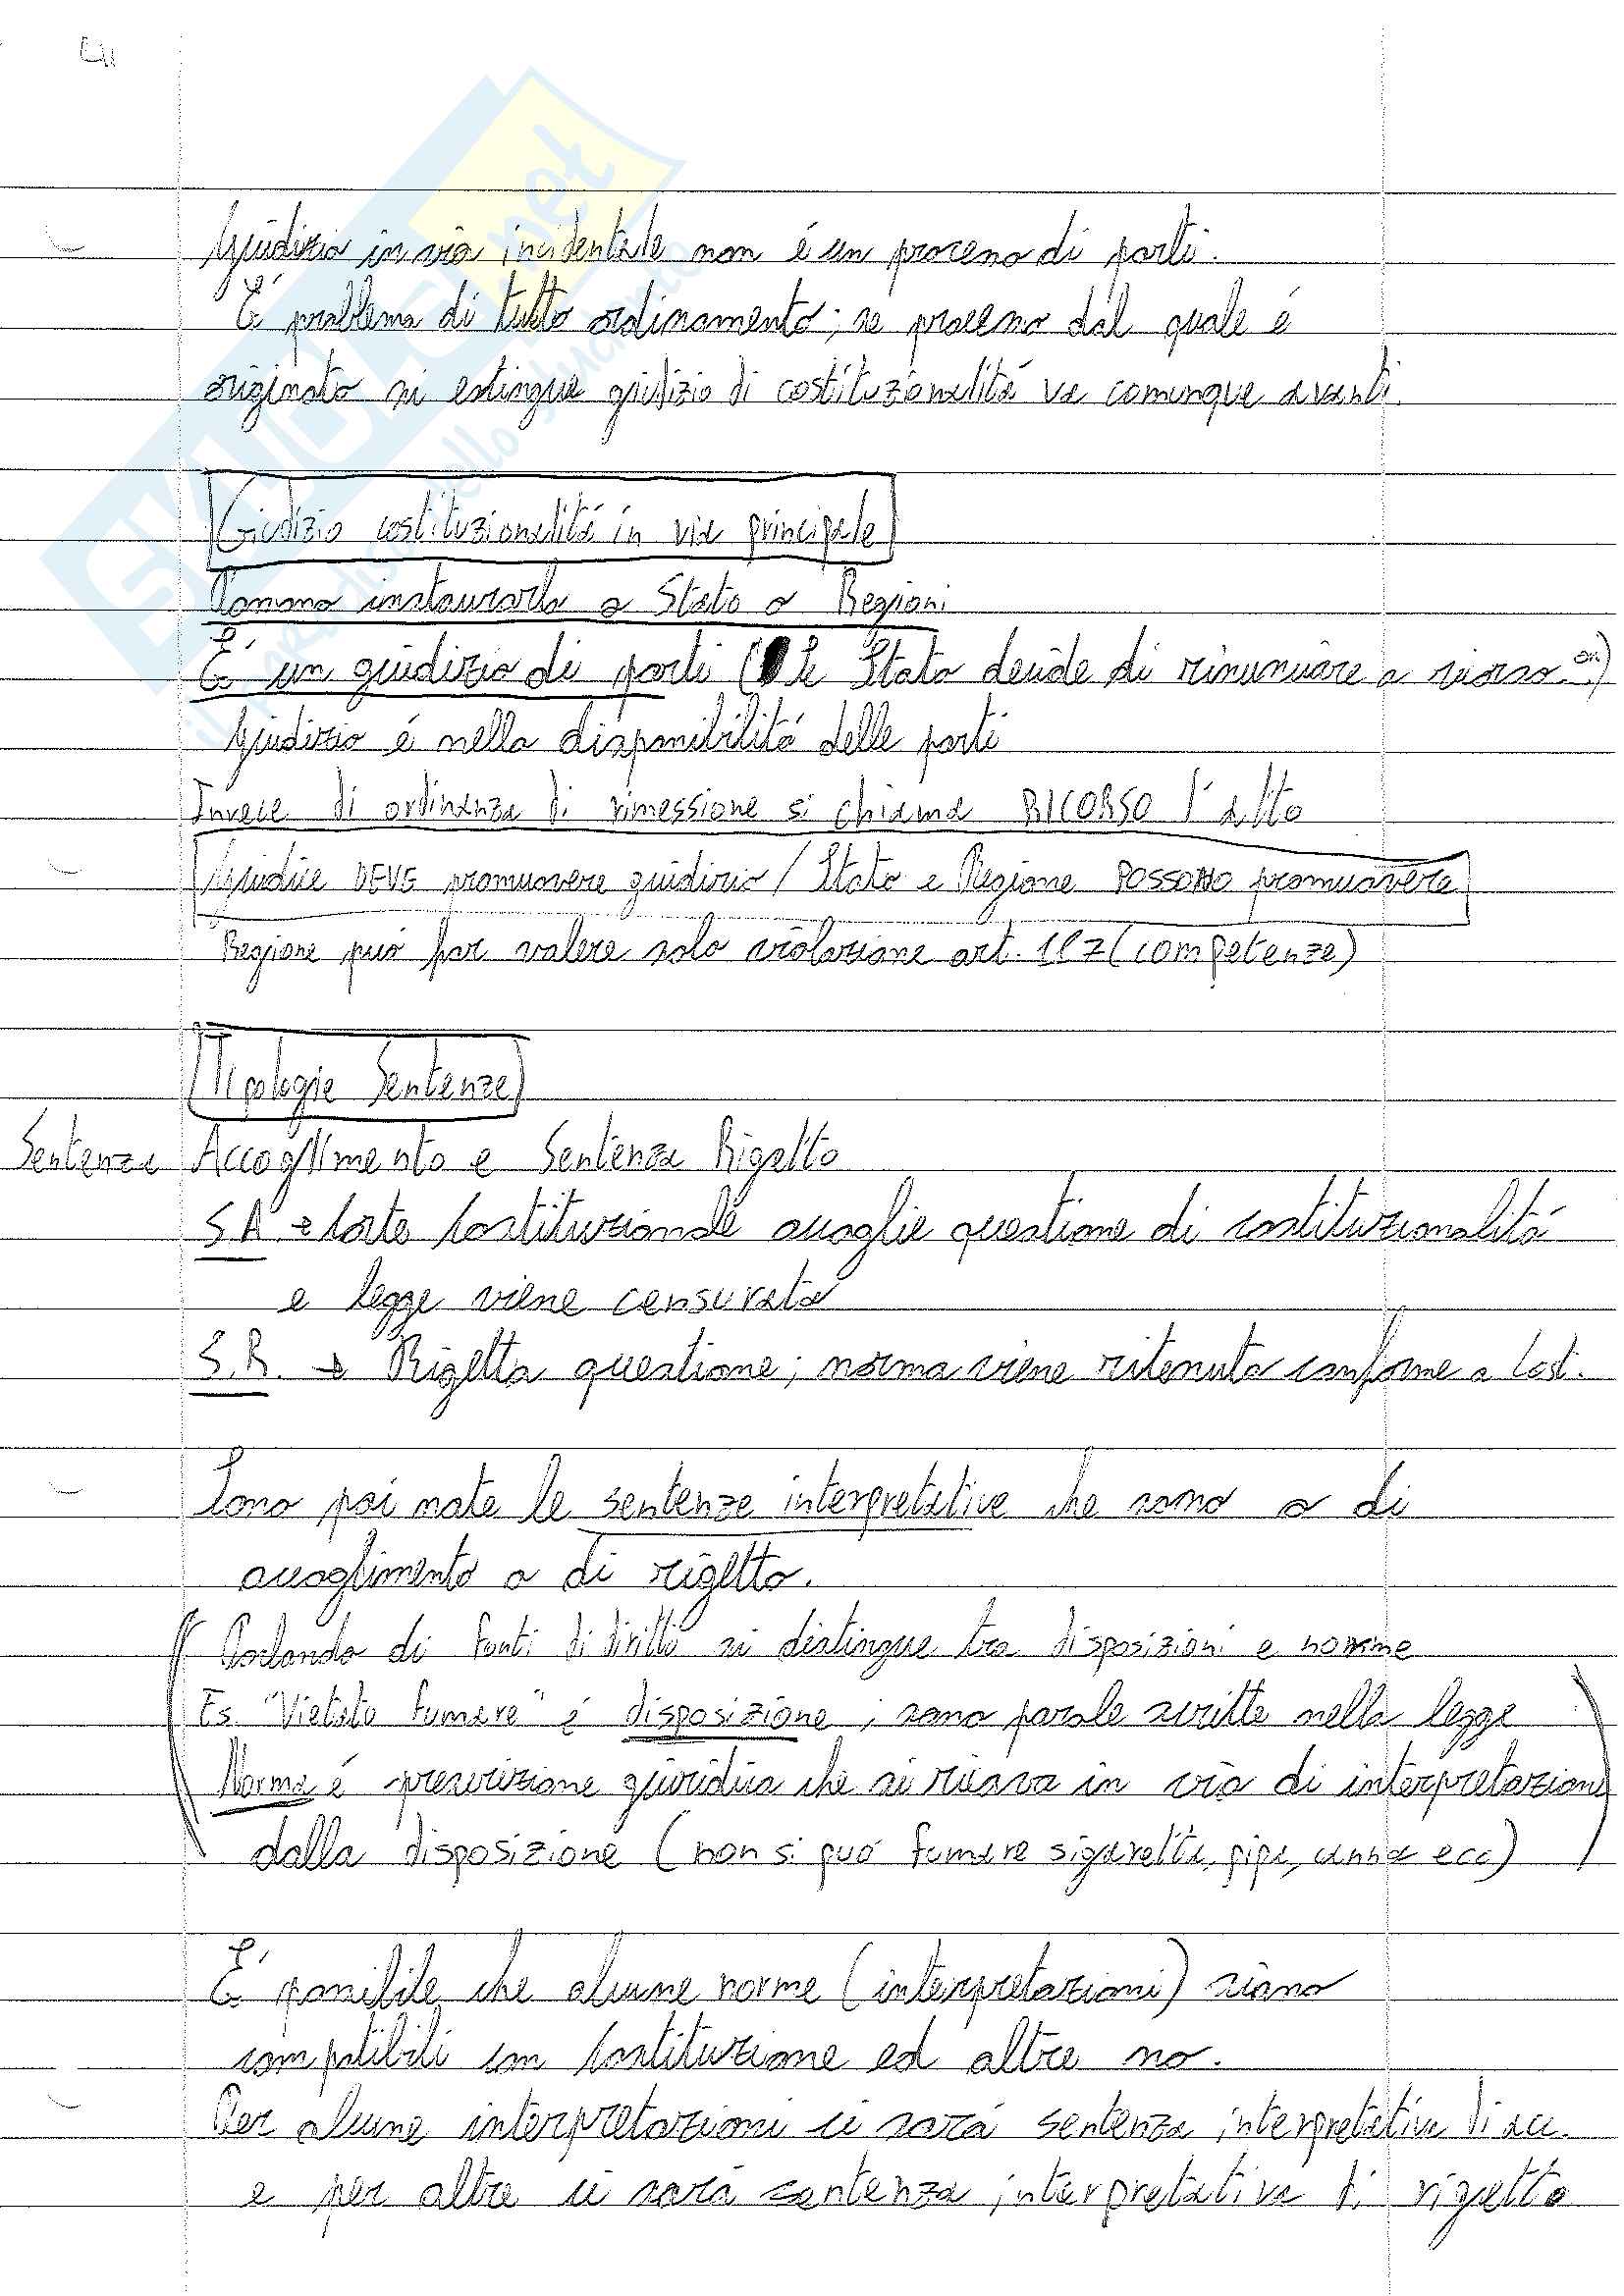 Giudizio in via incidentale non é un processo di parti.
É problema di tutto ordinamento; se processo dal quale é
originato si estingue giudizio di costituzionalitá va comunque avanti.
Giudizio costituzionalitá in via principale
Possono instaurarlo o Stato o Regioni
É un giudizio di parti (Se Stato decide di rinunciare a ricorso ok)
Giudizio é nella disponibilitá delle parti
Invece di ordinanza di rimessione si chiama RICORSO l'atto
Giudice DEVE promuovere giudizio / Stato e Regione POSSONO promuovere
Regione puó far valere solo violazione art. 117 (competenze)
Tipologie Sentenze
Sentenza Accoglimento e Sentenza Rigetto
S.A. → Corte Costituzionale accoglie questione di costituzionalitá
e legge viene censurata
S.R. → Rigetta questione; norma viene ritenuta conforme a Cost.
Sono poi nate le sentenze interpretative che sono o di
accoglimento o di rigetto.
Parlando di fonti di diritto si distingue tra disposizioni e norme
Es. "Vietato fumare" é disposizione; sono parole scritte nella legge
Norma é prescrizione giuridica che si ricava in via di interpretazione
dalla disposizione (non si puó fumare sigaretta, pipa, canna ecc)
É possibile che alcune norme (interpretazioni) siano
compatibili con Costituzione ed altre no.
Per alcune interpretazioni ci sará sentenza interpretativa di acc.
e per altre ci sará sentenza interpretativa di rigetto